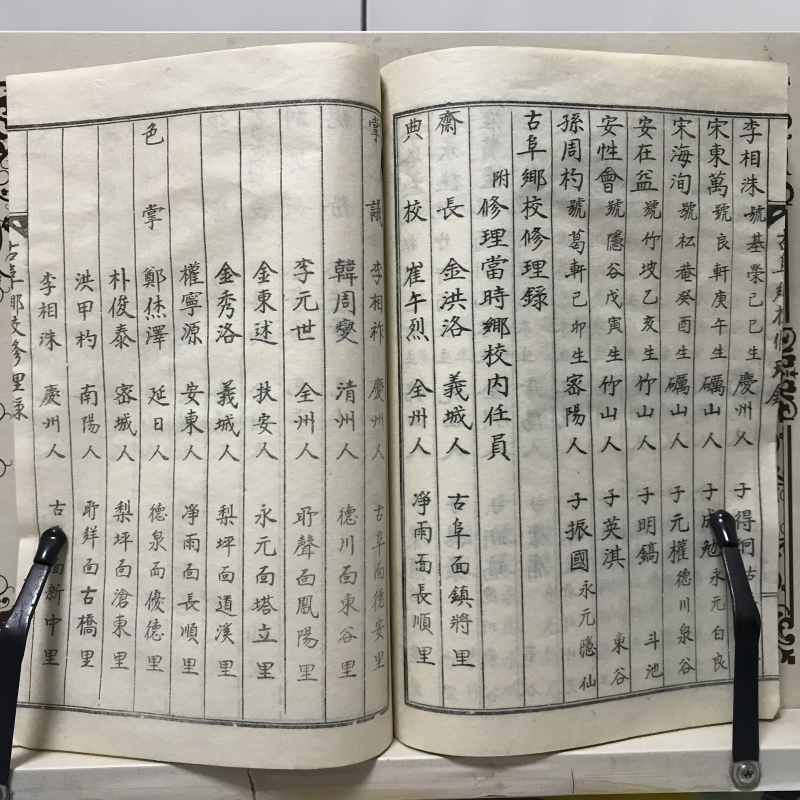 李相洙 號基榮己巳生 慶州人 子得 古
宋東萬 號良軒庚午生 礪山人 子成 永元白良
宋海洵 號松菴癸酉生 礪山人 子元權 德川泉谷
安在益 號竹坡乙亥生 竹山人 子明鎬 斗池
安性會 號隱谷戊寅生 竹山人 子英淇 東谷
孫周杓 號葛軒己卯生 密陽人 子振國 永元隱仙
古阜鄕校修理錄
附修理當時鄕校內任員
齋長 金洪洛 義城人 古阜面鎭將里
典校 崔午烈 全州人 凈雨面長順里
掌議 李相祚 慶州人 古阜面德安里
韓周燮 淸州人 德川面東谷里
李元世 全州人 所聲面鳳陽里
金東述 扶安人 永元面塔立里
金秀洛 義城人 梨坪面道溪里
權寧源 安東人 凈雨面長順里
色掌 鄭烋澤 延日人 德泉面優德里
朴俊泰 密城人 梨坪面滄東里
洪甲杓 南陽人 面古橋里
李相洙 慶州人 古 面新中里
古阜鄕校修理錄